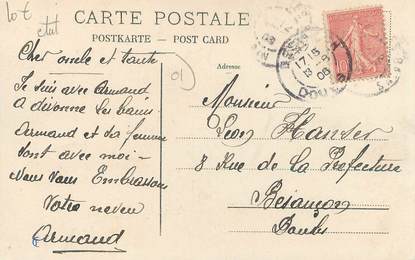 lot
état
CARTE POSTALE
POSTKARTE — POST CARD
Adresse
01
Cher oncle et tante
Je suis avec Armand
a divonne les bains
Armand et sa femme
sont avec moi —
Nous vous Embrassons
Votre neveu
Armand
Monsieur
Léon Hanser
8 Rue de la Préfecture
Besançon
Doubs
17 15
-9
06
DOUBS
10